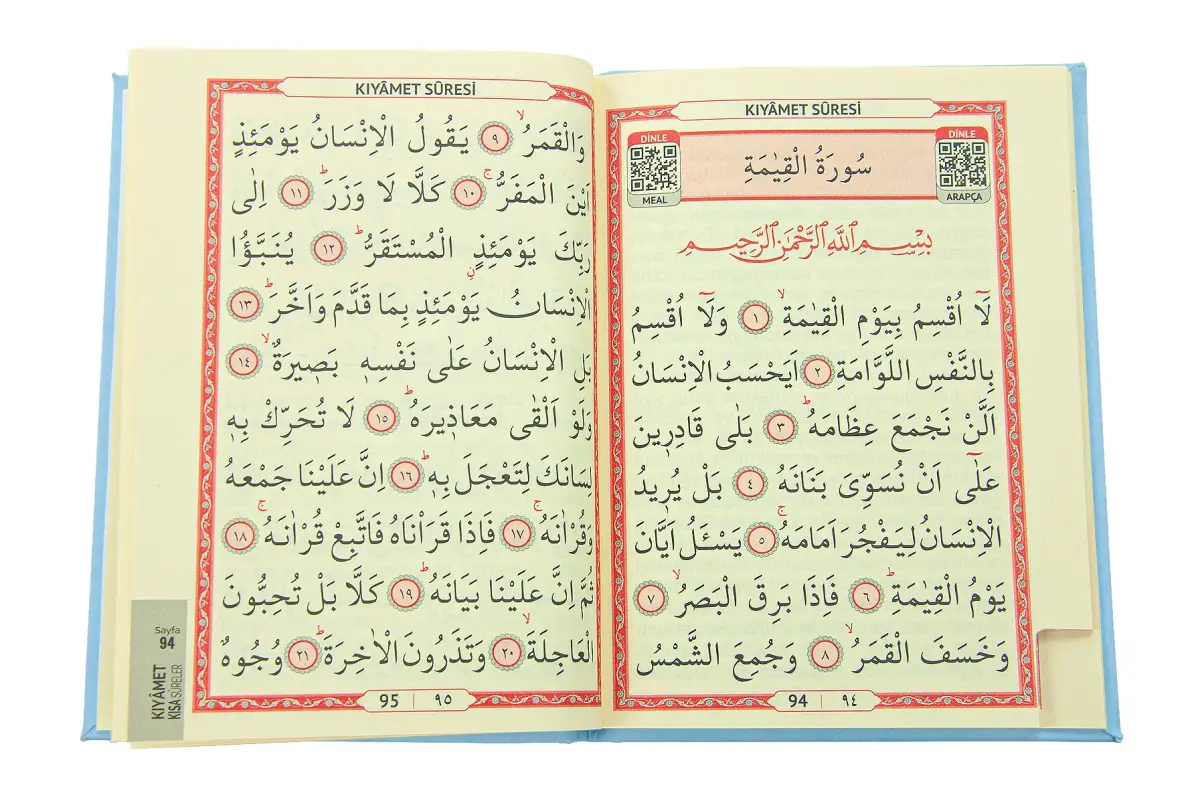 KIYÂMET SÛRESİ
DİNLE
MEAL
سُورَةُ الْقِيٰمَةِ
DİNLE
ARAPÇA
بِسْمِ اللّٰهِ الرَّحْمٰنِ الرَّحِيمِ
لَٓا اُقْسِمُ بِيَوْمِ الْقِيٰمَةِۙ ﴿١﴾ وَلَٓا اُقْسِمُ
بِالنَّفْسِ اللَّوَّامَةِ ﴿٢﴾ اَيَحْسَبُ الْاِنْسَانُ
اَلَّنْ نَجْمَعَ عِظَامَهُۜ ﴿٣﴾ بَلٰى قَادِر۪ينَ
عَلٰٓى اَنْ نُسَوِّيَ بَنَانَهُ ﴿٤﴾ بَلْ يُر۪يدُ
الْاِنْسَانُ لِيَفْجُرَ اَمَامَهُۚ ﴿٥﴾ يَسْـَٔلُ اَيَّانَ
يَوْمُ الْقِيٰمَةِۜ ﴿٦﴾ فَاِذَا بَرِقَ الْبَصَرُۙ ﴿٧﴾
وَخَسَفَ الْقَمَرُۙ ﴿٨﴾ وَجُمِعَ الشَّمْسُ
94 | ٩٤
KIYÂMET SÛRESİ
وَالْقَمَرُۙ ﴿٩﴾ يَقُولُ الْاِنْسَانُ يَوْمَئِذٍ
اَيْنَ الْمَفَرُّۚ ﴿١٠﴾ كَلَّا لَا وَزَرَۜ ﴿١١﴾ اِلٰى
رَبِّكَ يَوْمَئِذٍ الْمُسْتَقَرُّۜ ﴿١٢﴾ يُنَبَّؤُا
الْاِنْسَانُ يَوْمَئِذٍ بِمَا قَدَّمَ وَاَخَّرَۜ ﴿١٣﴾
بَلِ الْاِنْسَانُ عَلٰى نَفْسِه۪ بَص۪يرَةٌۙ ﴿١٤﴾
وَلَوْ اَلْقٰى مَعَاذ۪يرَهُۜ ﴿١٥﴾ لَا تُحَرِّكْ بِه۪
لِسَانَكَ لِتَعْجَلَ بِه۪ۜ ﴿١٦﴾ اِنَّ عَلَيْنَا جَمْعَهُ
وَقُرْاٰنَهُۚ ﴿١٧﴾ فَاِذَا قَرَاْنَاهُ فَاتَّبِعْ قُرْاٰنَهُۚ ﴿١٨﴾
ثُمَّ اِنَّ عَلَيْنَا بَيَانَهُۜ ﴿١٩﴾ كَلَّا بَلْ تُحِبُّونَ
الْعَاجِلَةَۙ ﴿٢٠﴾ وَتَذَرُونَ الْاٰخِرَةَۜ ﴿٢١﴾ وُجُوهٌ
95 | ٩٥
Sayfa
94
KIYÂMET
KISA SÛRELER